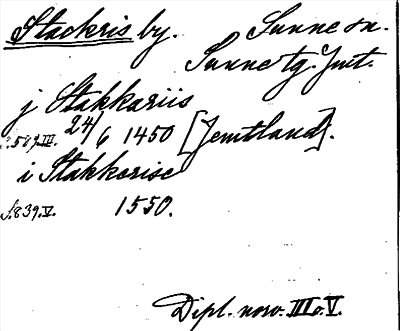 Stackris by. Sunne sn.
Sunne tg. Jmt.
j Stakkariis
s. 589. III. 24/6 1450 [Jemtland].
i Stakkerise
s. 839. V. 1550.
Dipl. norv. III o. V.